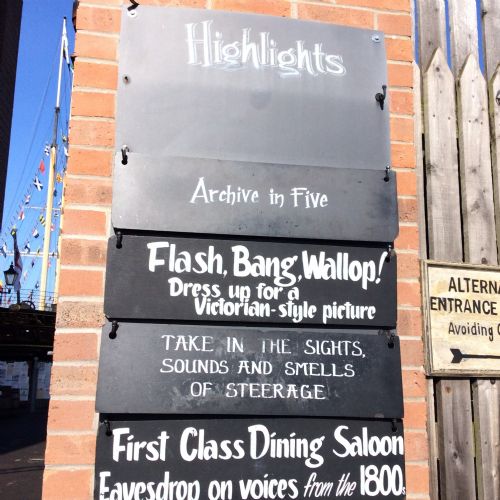 Highlights
Archive in Five
Flash, Bang, Wallop!
Dress up for a
Victorian-style picture
TAKE IN THE SIGHTS,
SOUNDS AND SMELLS
OF STEERAGE
First Class Dining Saloon
Eavesdrop on voices from the 1800s
ENTRANCE
Avoiding